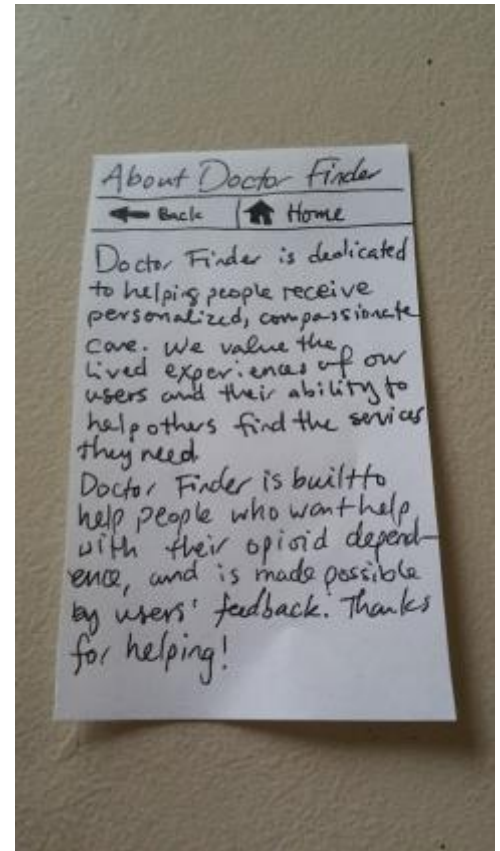 About Doctor Finder
Back
Home
Doctor Finder is dedicated
to helping people receive
personalized, compassionate
care. We value the
lived experiences of our
users and their ability to
help others find the services
they need
Doctor Finder is built to
help people who want help
with their opioid depend-
ence, and is made possible
by users' feedback. Thanks
for helping!